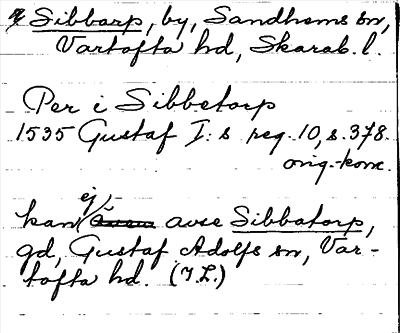 Sibbarp, by, Sandhems sn,
Vartofta hd, Skarab. l.
Per i Sibbetorp
1535 Gustaf I:s reg. 10, s. 378.
orig.-konc.
kan ej avse Sibbatorp,
gd, Gustaf Adolfs sn, Var-
tofta hd. (I.L.)